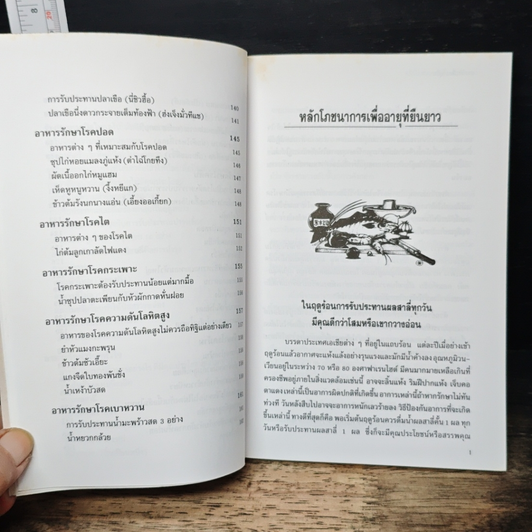 การรับประทานปลาเชือ (นี่ชิวฮื้อ) 140
ปลาเชือนึ่งดาวกระจายเต็มท้องฟ้า (ฮ่งเจ็งมั่วทีแซ) 141
อาหารรักษาโรคปอด 145
อาหารต่าง ๆ ที่เหมาะสมกับโรคปอด 146
ซุปไก่หอยแมลงภู่แห้ง (ตำไฉ่โกยทึง) 148
ผัดเนื้ออกไก่หมูแฮม 148
เห็ดหูหนูหวาน (งึ้งหยีแก) 148
ข้าวต้มรังนกนางแอ่น (เอี้ยงออเกี้ยก) 148
อาหารรักษาโรคไต 151
อาหารต่าง ๆ ของโรคไต 151
ไก่ต้มลูกเกาลัดไฟแดง
อาหารรักษาโรคกระเพาะ
โรคกระเพาะต้องรับประทานน้อยแต่มากมื้อ
น้ำซุปปลาตะเพียนกับหัวผักกาดหั่นฝอย
อาหารรักษาโรคความดันโลหิตสูง
อาหารของโรคความดันโลหิตสูงไม่ควรถือทิฐิแต่อย่างเดียว
ยำหัวแมงกะพรุน
ข้าวต้มขัวเอี๊ยะ
แกงจืดไบทองพันชั่ง
น้ำเหง้าบัวสด
อาหารรักษาโรคเบาหวาน
การรับประทานน้ำมะพร้าวสด 3 อย่าง
น้ำหยวกกล้วย
หลักโภชนาการเพื่ออายุที่ยืนยาว
ในฤดูร้อนการรับประทานผลสาลี่ทุกวัน
มีคุณดีกว่าโสมหรือเขากวางอ่อน
บรรดาประเทศเอเชียต่าง ๆ ที่อยู่ในแถบร้อน แต่ละปีเมื่อย่างเข้า
ฤดูร้อนแล้วอากาศจะแห้งแล้งอย่างรุนแรงและมักมีน้ำค้างลง อุณหภูมิวน-
เวียนอยู่ในระหว่าง 70 หรือ 80 องศาฟาเรนไฮต์ มีคนมากมายเหลือเกินที่
ครองชีพอยู่ภายในสิ่งแวดล้อมเช่นนี้ อาจจะลิ้นแห้ง ริมฝีปากแห้ง เจ็บคอ
ตาแดง เหล่านี้เป็นอาการผิดปกติที่เกิดขึ้น อาการเหล่านี้ถ้าหากรักษาไม่ทัน
ท่วงที วันหลังสืบไปอาจจะอาการหนักเลวร้ายลง วิธีป้องกันอาการที่จะเกิด
ขึ้นเหล่านี้ ทางดีที่สุดก็คือ พอเริ่มต้นฤดูร้อนควรดื่มน้ำผลสาลี่คั้น 1 ผล ทุก
วันหรือรับประทานผลสาลี่ 1 ผล ซึ่งก็จะมีคุณประโยชน์หรือสรรพคุณ
1